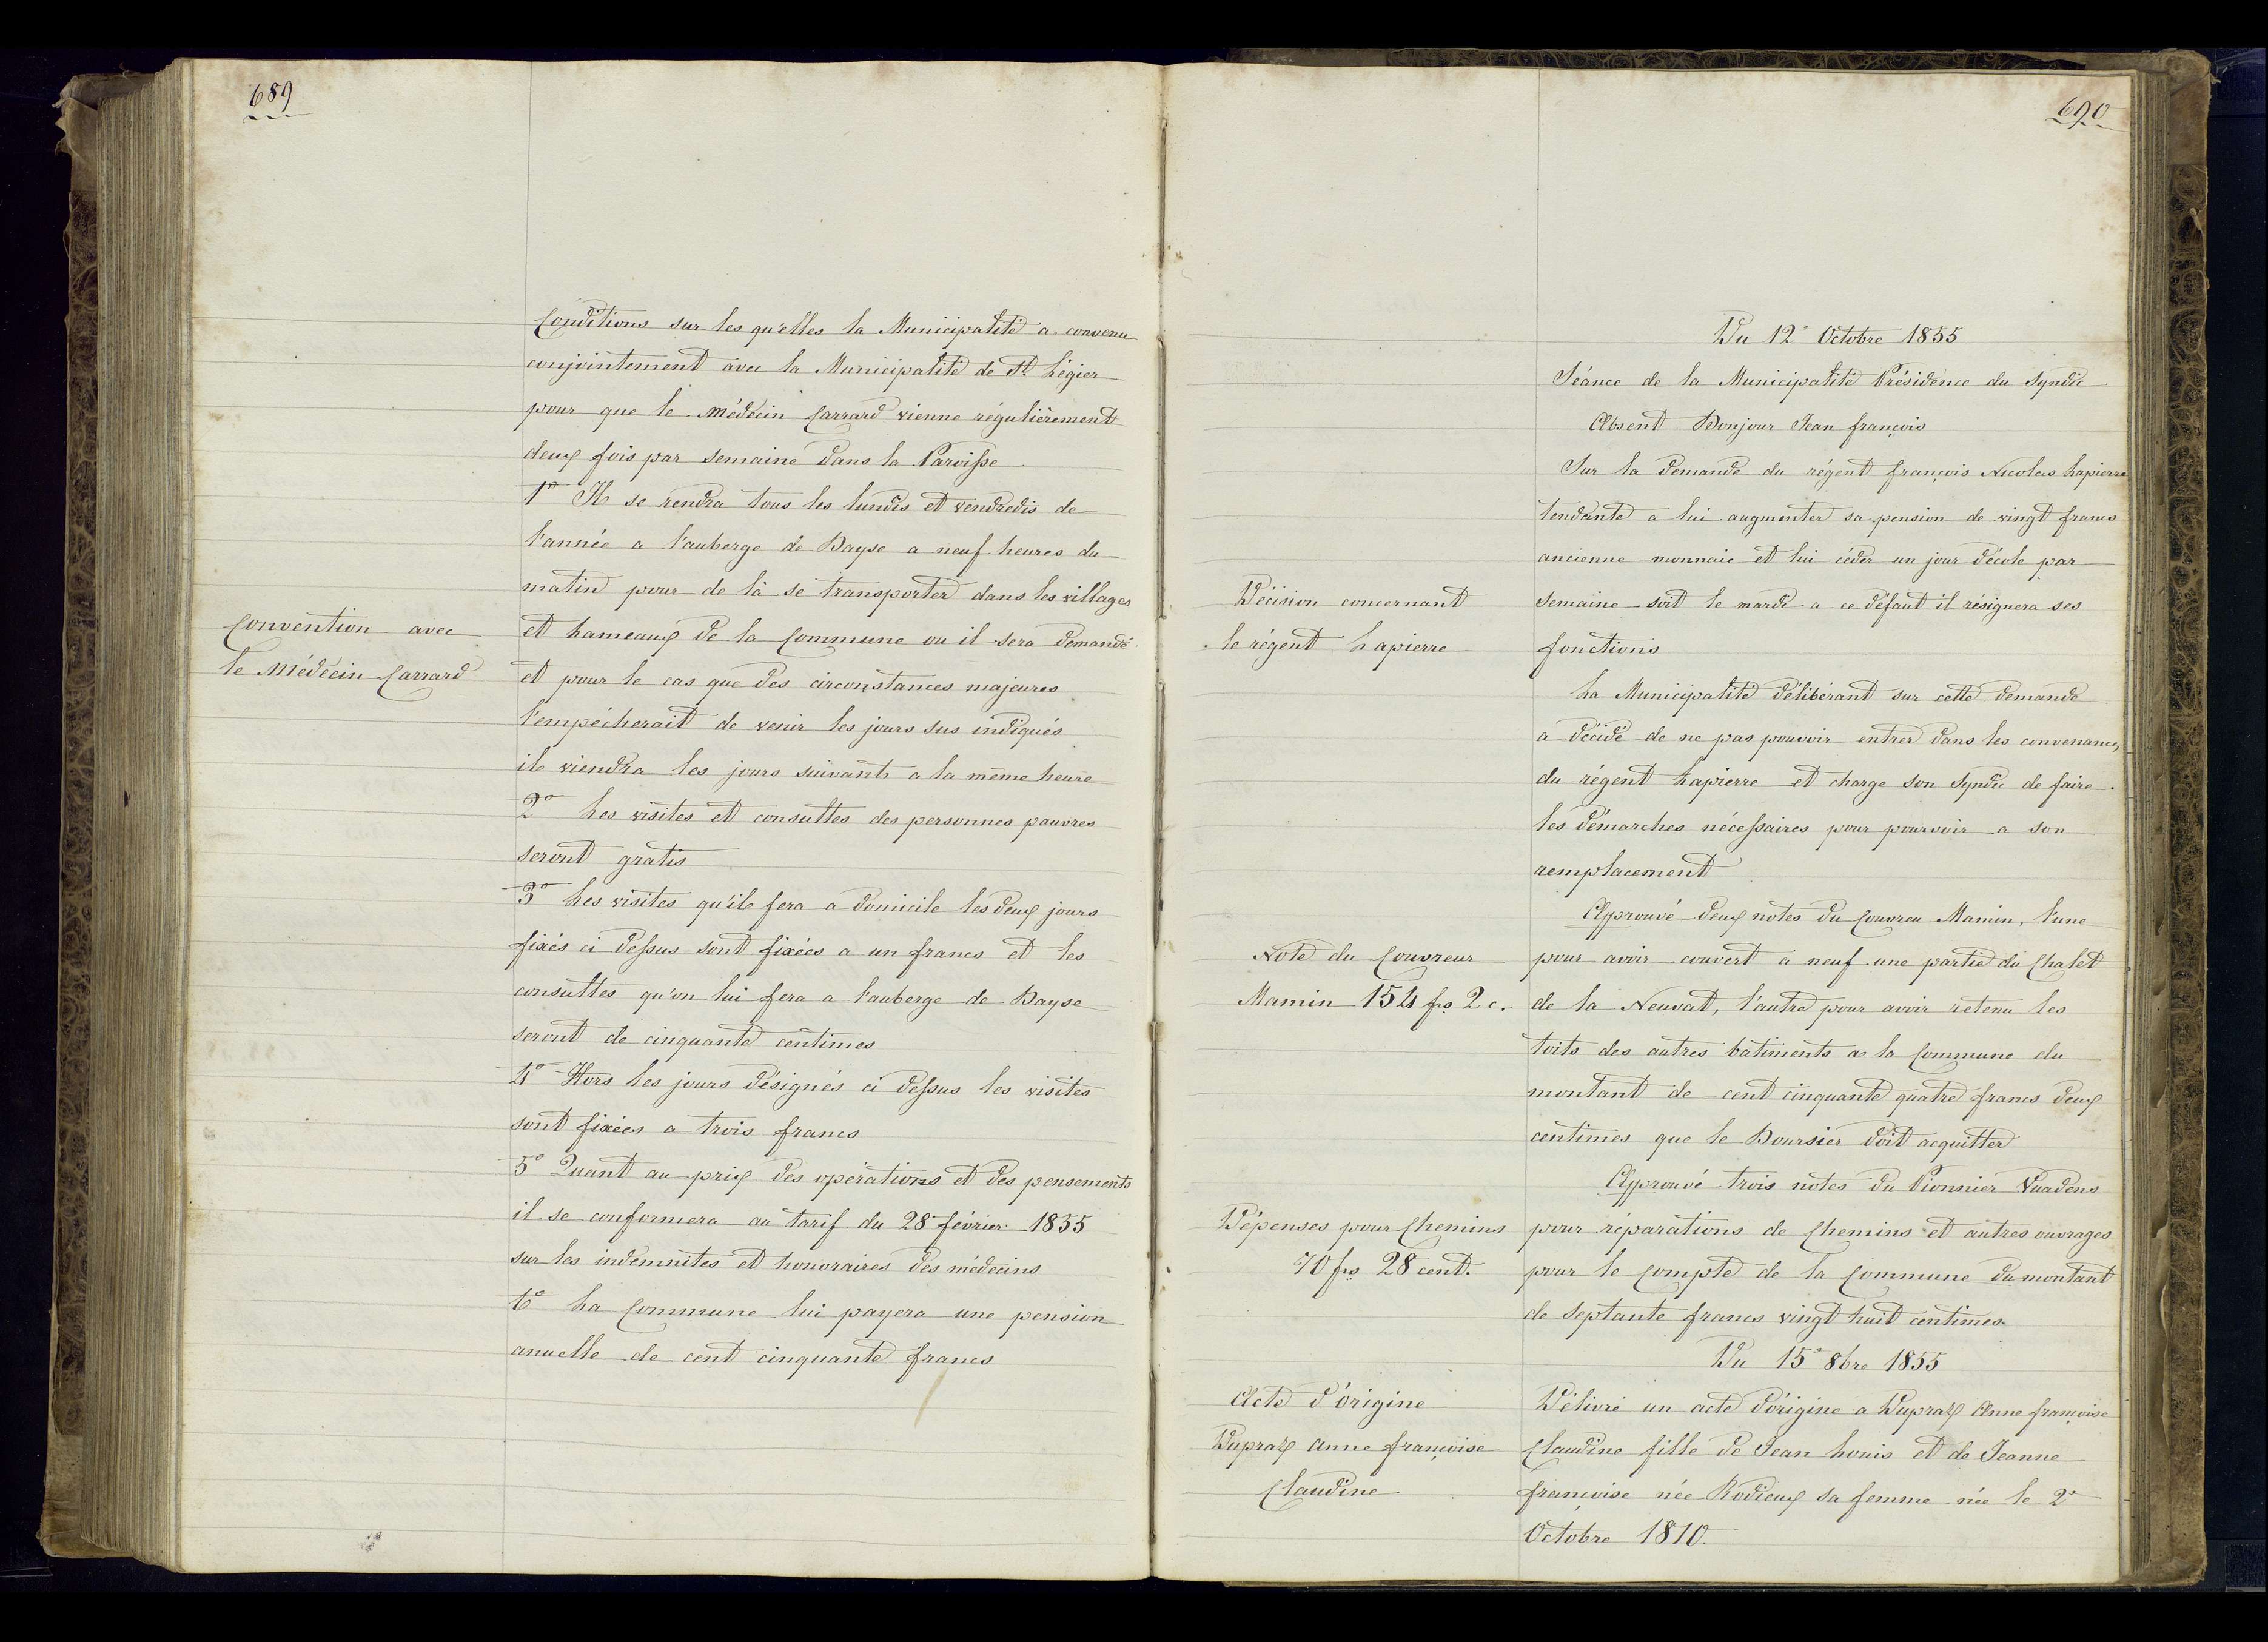 689
Conditions sur les qu'elles la Municipalité a convenu
conjointement avec la Municipalité de St Légier
pour que le Médecin Carrard vienne régulièrement
deux fois par semaine dans la Paroisse
1° Il se rendra tous les lundis et vendredis de
l'année a l'auberge de Bayse a neuf heures du
matin pour de là se transporter dans les villages
Convention avec
le Médecin Carrard
et hameaux de la Commune ou il sera demandé
et pour le cas que des circonstances majeures
l'empécherait de venir les jours sus indiqués
il viendra les jours suivants a la même heure
2° Les visites et consultes des personnes pauvres
seront gratis
3° Les visites qu'il fera a domicile les deux jours
fixés ci dessus sont fixées a un francs et les
consultes qu'on lui fera a l'auberge de Bayse
seront de cinquante centimes
4° Hors les jours désignés ci dessus les visites
sont fixées a trois francs
5° Quant au prix des opérations et des pensements
il se conformera au tarif du 28 février 1855
sur les indemnites et honoraires des médecins
6° La Commune lui payera une pension
anuelle de cent cinquante francs
690
Du 12° Octobre 1855
Séance de la Municipalité Présidence du Syndic
Absent Bonjour Jean françois
Sur la demande du régent françois Nicolas Lapierre
tendante a lui augmenter sa pension de vingt francs
ancienne monnaie et lui céder un jour d'école par
Décision concernant
le régent Lapierre
semaine soit le mardi a ce défaut il résignera ses
fonctions
La Municipalité délibérant sur cette demande
a décidé de ne pas pouvoir entrer dans les convenances
du régent Lapierre et charge son Syndic de faire
les démarches nécessaires pour pourvoir a son
remplacement
Approuvé deux notes du Couvreu Mamin, l'une
Note du Couvreur
Mamin 154 frs 2 c.
pour avoir couvert a neuf une partie du Chalet
de la Neuvat, l'autre pour avoir retenu les
toits des autres bâtiments a la Commune du
montant de cent cinquante quatre francs deux
centimes que le Boursier doit acquitter
Approuvé trois notes du Pionnier Vuadens
Dépenses pour Chemins
70 frs 28 cent.
pour réparations de Chemins et autres ouvrages
pour le Compte de la Commune du montant
de septante francs vingt huit centimes
Du 15° 8bre 1855
Acte d'origine
Dupraz Anne françoise
Claudine
Délivré un acte d'origine a Dupraz Anne françoise
Claudine fille de Jean Louis et de Jeanne
françoise née Rodieux sa femme née le 2°
Octobre 1810.